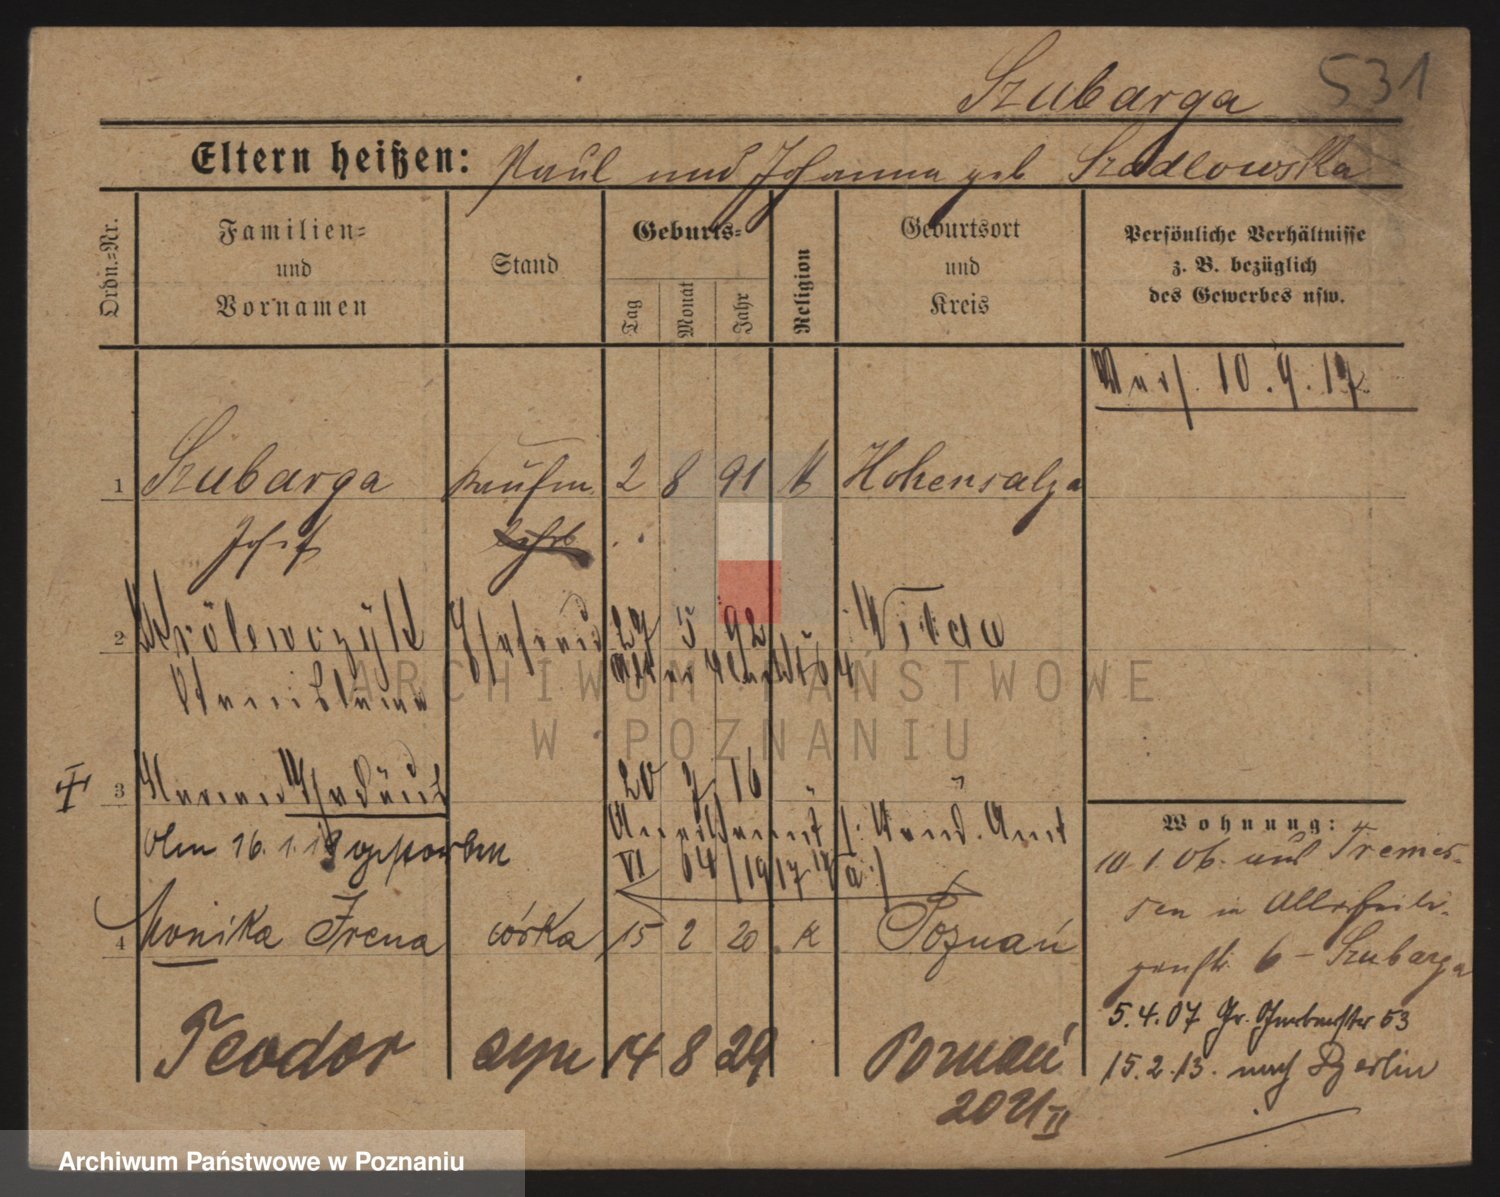 Szubarga 531
Eltern heißen: Paul und Johanna geb Szadlowska
Ordn.-Nr.
Familien- und Vornamen
Stand
Geburts-
Tag Monat Jahr
Religion
Geburtsort und Kreis
Persönliche Verhältnisse
z. B. bezüglich
des Gewerbes usw.
10.9.17
1 Szubarga Kaufm. 2 8 91 K Hohensalza
Josef
2 Ehefrau 27 5 92 Witkow
Stanislawa
3 Marian 20 7 16
Am 16.1.19 gestorben
VI 64/1917
4 Monika Irena córka 15 2 20 K Poznań
Teodor syn 14 8 29 Poznań
Wohnung:
10.1.06. aus Tremes-
sen in Allerheili-
genstr. 6 - Szubarga
5.4.07 Gr. 53
15.2.13. nach Berlin
ARCHIWUM PAŃSTWOWE
W POZNANIU
Archiwum Państwowe w Poznaniu